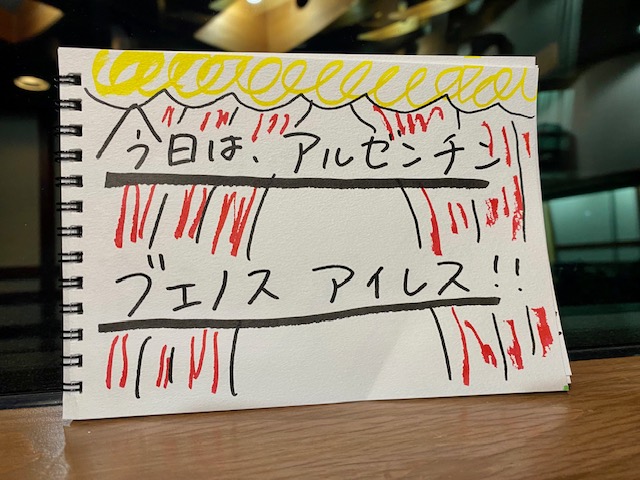 今日は、アルゼンチン
ブエノス アイレス!!